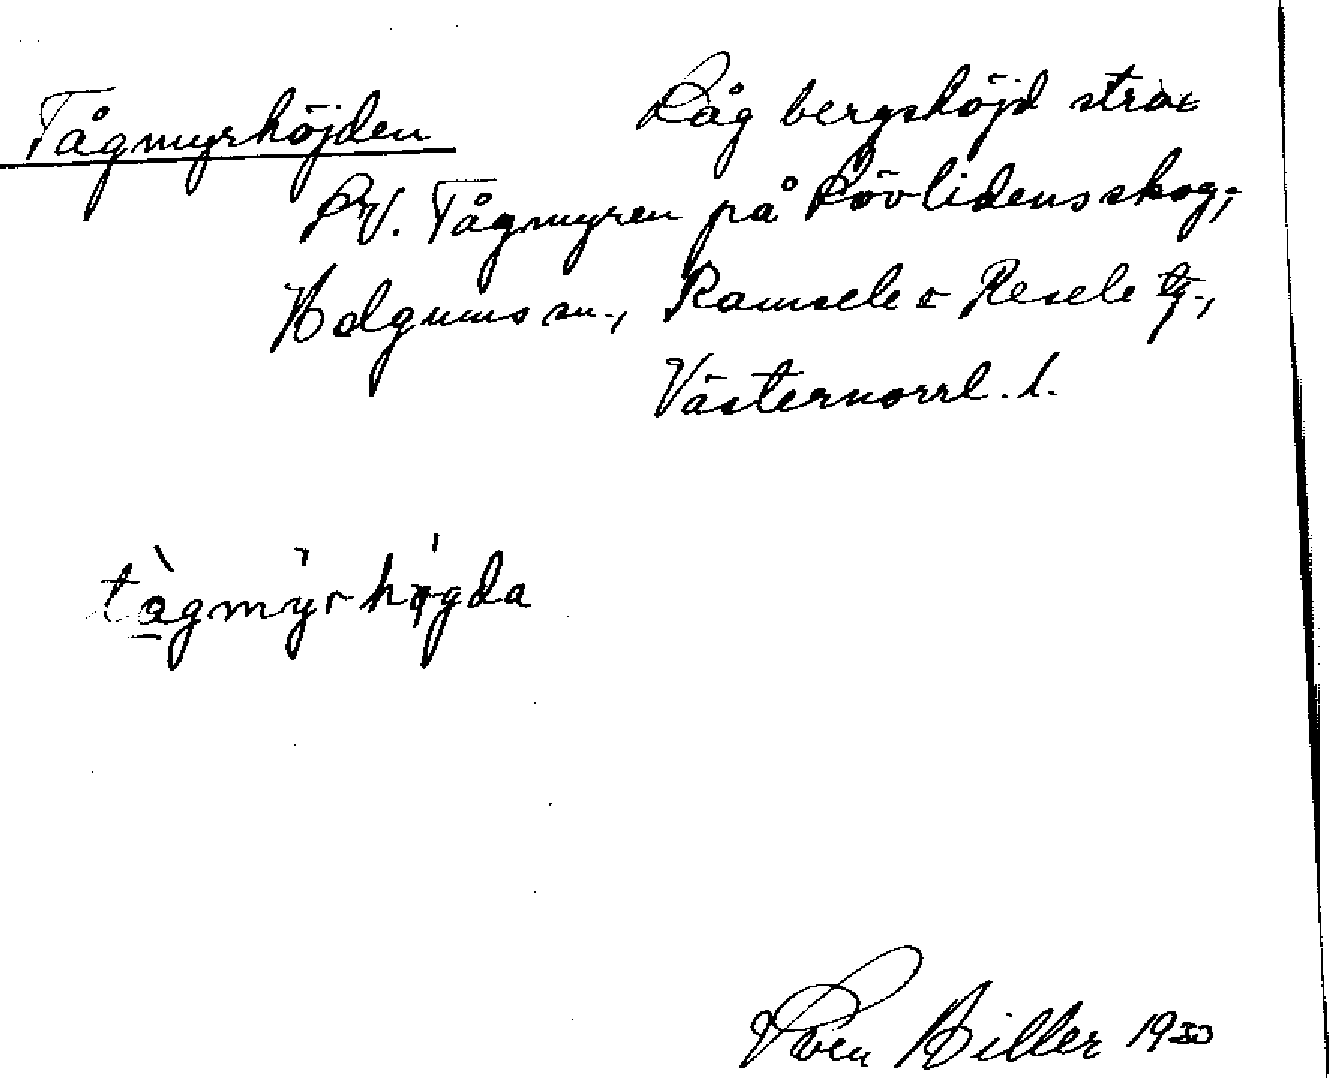 Tågmyrhöjden Låg bergshöjd strax
SV. Tågmyren på Lövlidens skog,
Helgums sn., Ramsele o Resele tg.,
Västernorrl. l.
tàgmyrhøgda
Sven Hiller 1930